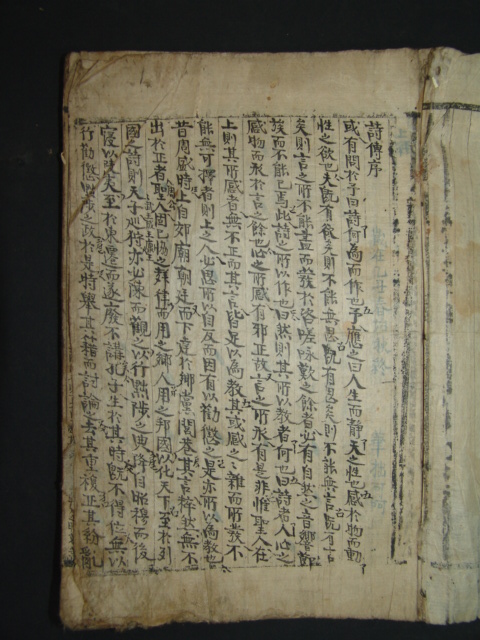 詩傳序
或有問於予曰詩何爲而作也予應之曰人生而靜天之性也感於物而動
性之欲也夫旣有欲矣則不能無思旣有思矣則不能無言旣有言
矣則言之所不能盡而發於咨嗟咏歎之餘者必有自然之音響節
族而不能已焉此詩之所以作也曰然則其所以教者何也曰詩者人心之
感物而形於言之餘也心之所感有邪正故言之所形有是非惟聖人在
上則其所感者無不正而其言皆足以爲教其或感之之雜而所發不
能無可擇者則上之人必思所以自反而因有以勸懲之是亦所以爲教也
昔周盛時上自郊廟朝廷而下達於鄉黨閭巷其言粹然無不
出於正者聖人固已協之聲律而用之鄉人用之邦國以化天下至於列
國之詩則天子巡狩亦必陳而觀之以行黜陟之典降自昭穆而後
寖以陵夷至於東遷而遂廢不講孔子生於其時旣不得位無以
行勸懲黜陟之政於是特舉其籍而討論之去其重複正其紛亂